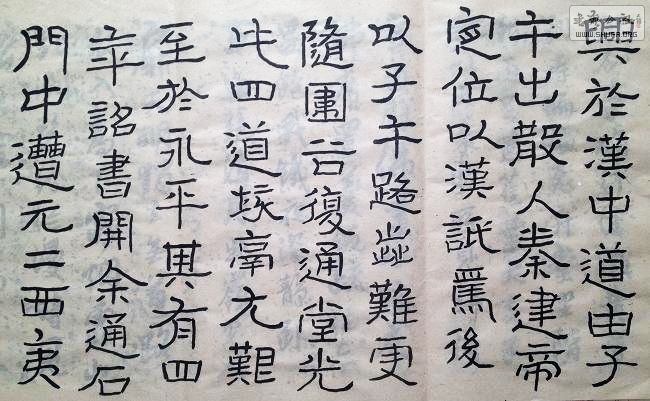 興於漢中道由子
午出散入秦建帝
定位以漢詆焉後
以子午路澁難更
隨圍谷復通堂光
此四道垓鬲尤艱
至於永平其有四
年詔書開余通石
門中遭元二西夷
WWW.SHUSA.ORG